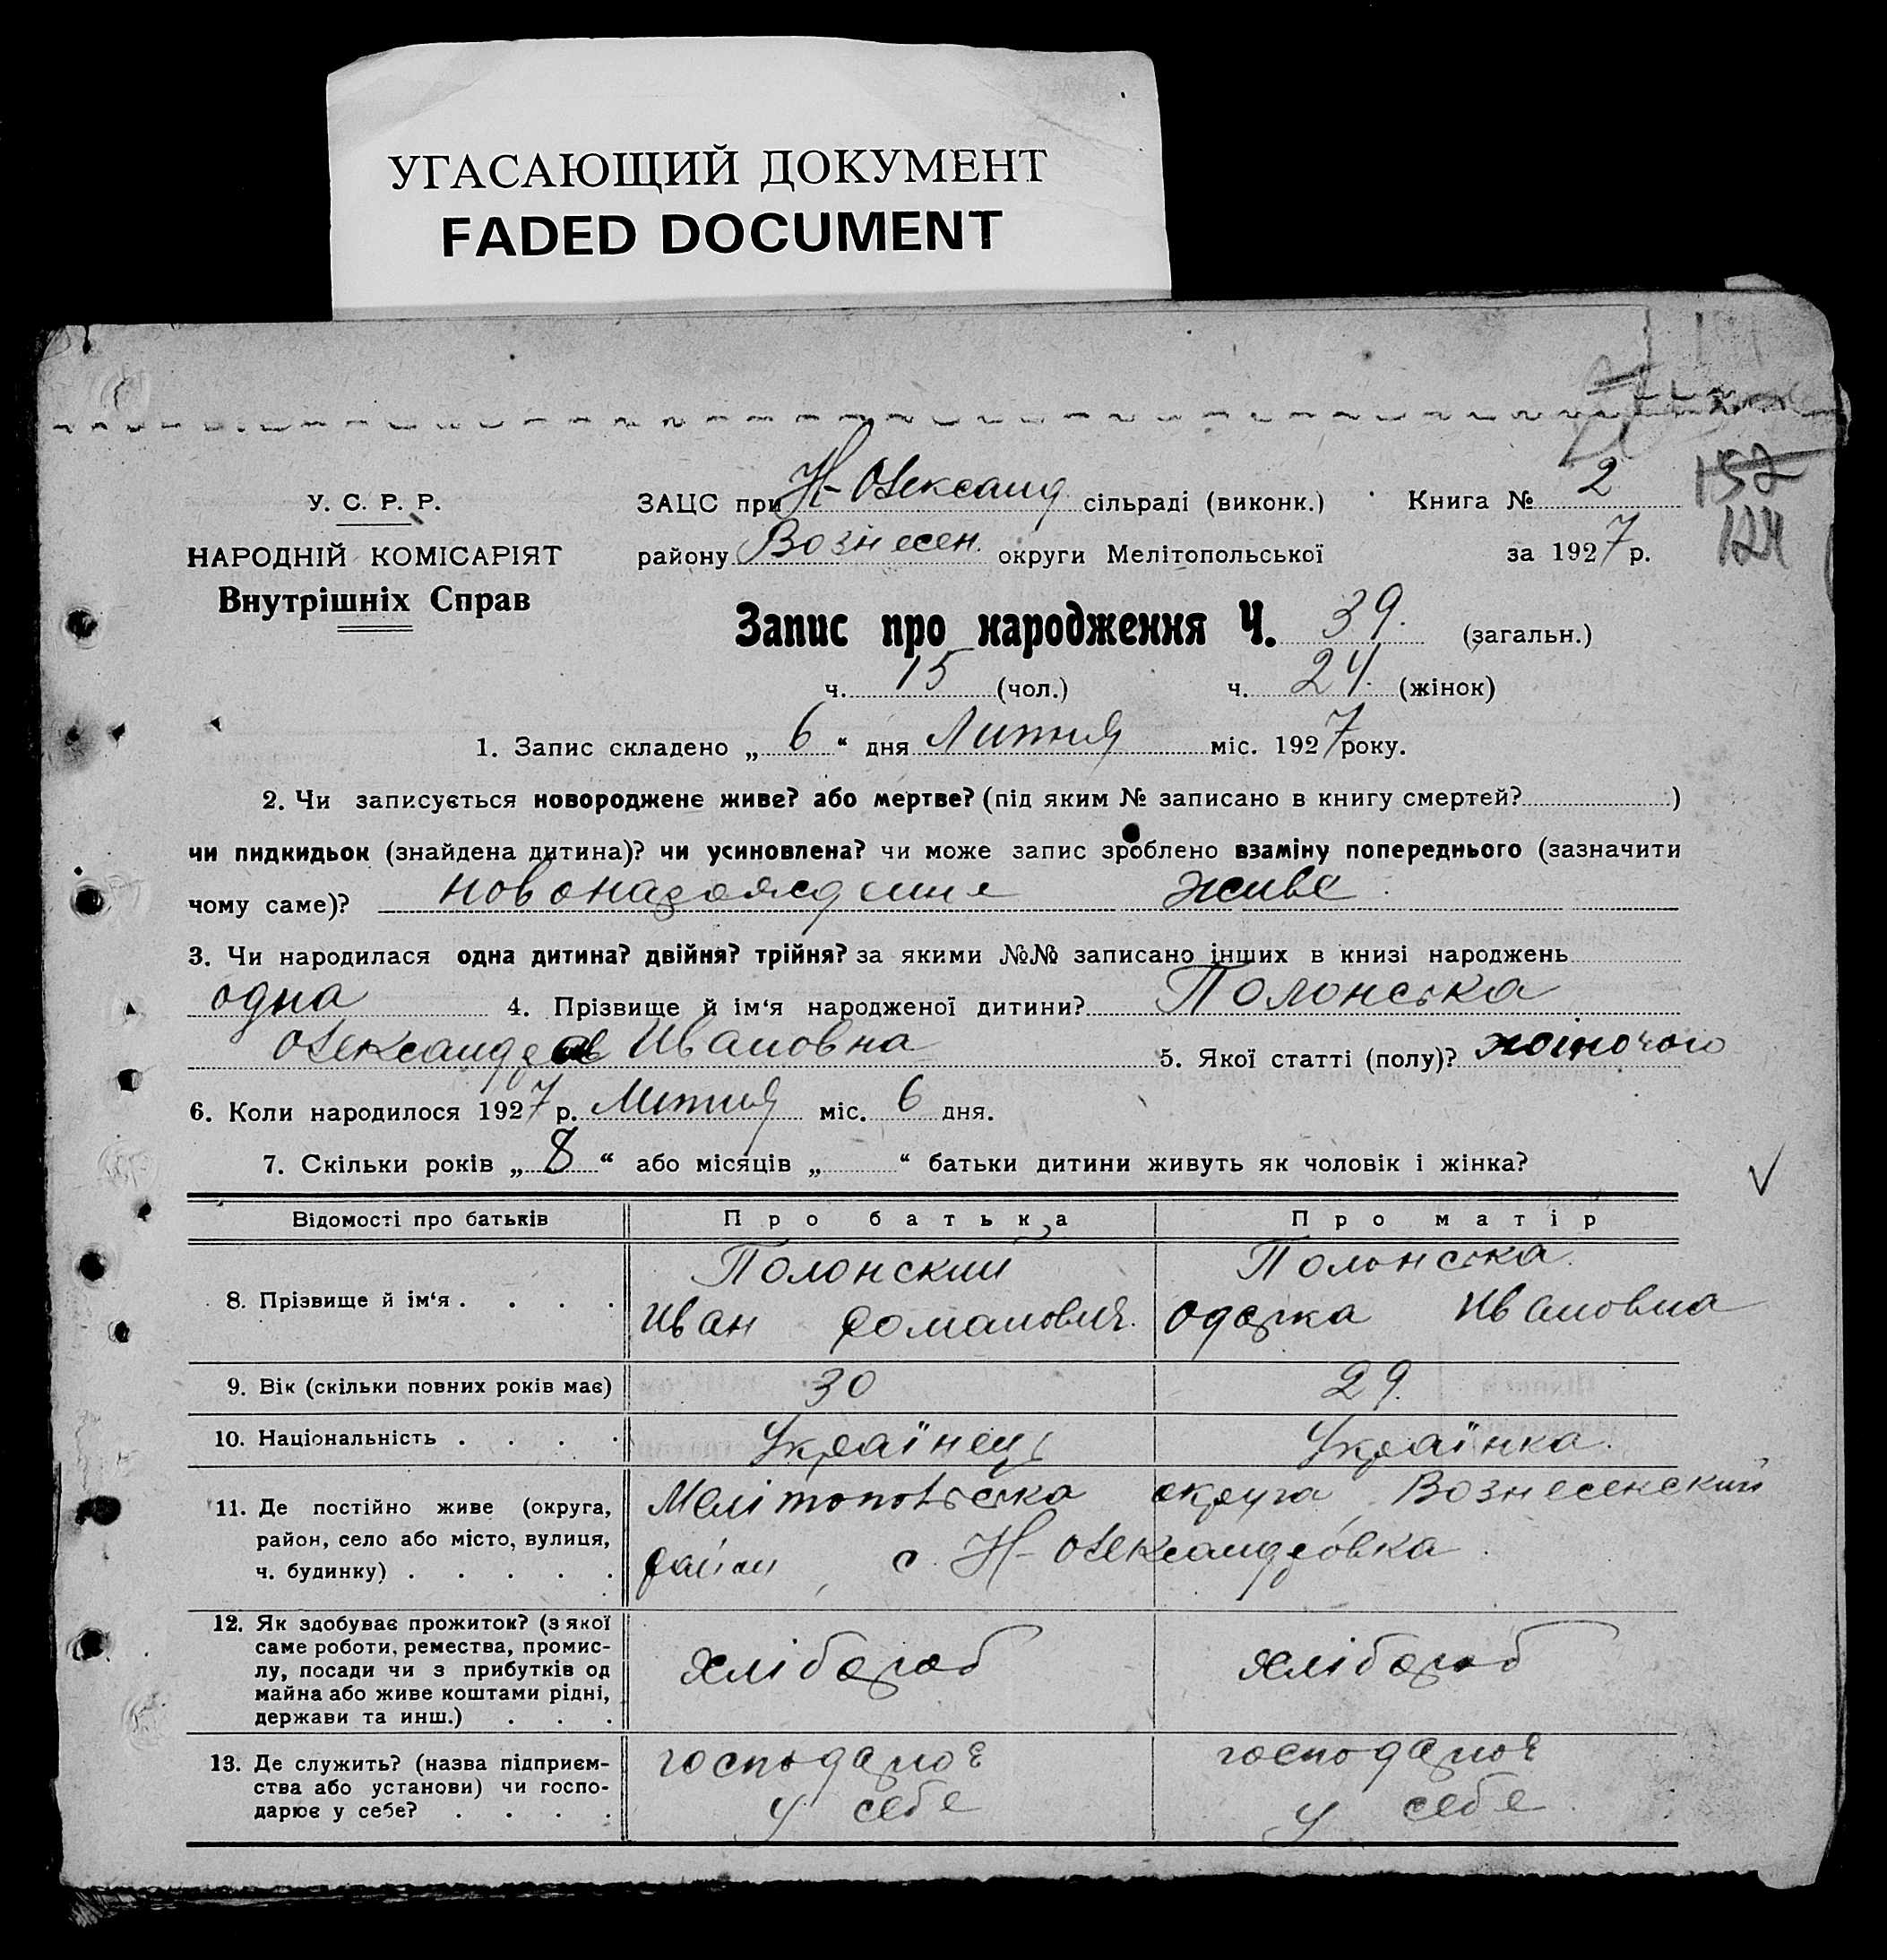 УГАСАЮЩИЙ ДОКУМЕНТ
FADED DOCUMENT
152
124
У. С. Р. Р.
НАРОДНІЙ КОМІСАРІЯТ
Внутрішніх Справ
ЗАЦС при Н-Олександ сільраді (виконк.) Книга № 2
району Вознесен. округи Мелітопольської за 1927 р.
Запис про народження Ч. 39. (загальн.)
ч. 15 (чол.) ч. 24. (жінок)
1. Запис складено „ 6 “ дня Липня міс. 1927 року.
2. Чи записується новороджене живе? або мертве? (під яким № записано в книгу смертей? )
чи пидкидьок (знайдена дитина)? чи усиновлена? чи може запис зроблено взаміну попереднього (зазначити
чому саме)? живе
3. Чи народилася одна дитина? двійня? трійня? за якими №№ записано інших в книзі народжень
одна 4. Прізвище й ім‘я народженої дитини? Полонська
Олександра Ивановна 5. Якої статті (полу)? жіночого
6. Коли народилося 1927 р. Липня міс. 6 дня.
7. Скільки років „ 8 “ або місяців „ “ батьки дитини живуть як чоловік і жінка?
Відомості про батьків Про батька Про матір
8. Прізвище й ім‘я . . . . Полонский Полонська.
Иван Романович. Одарка Ивановна
9. Вік (скільки повних років має) 30 29.
10. Національність . . . . Українець Українка.
11. Де постійно живе (округа, Мелітопольська округа, Вознесенский
район, село або місто, вулиця, район, с. Н-Олександровка.
ч. будинку) . . . . .
12. Як здобуває прожиток? (з якої
саме роботи, ремества, промис-
лу, посади чи з прибутків од хлібороб хлібороб
майна або живе коштами рідні,
держави та инш.) . . .
13. Де служить? (назва підприєм- господарює господарює
ства або установи) чи госпо- у себе у себе.
дарює у себе? . . . .